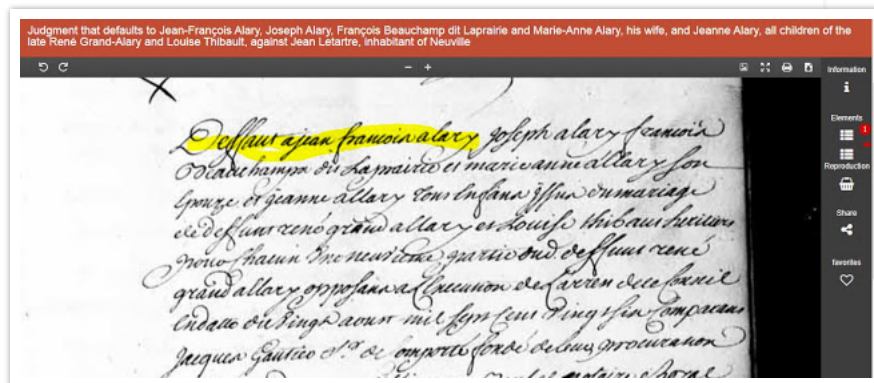 Judgment that defaults to Jean-François Alary, Joseph Alary, François Beauchamp dit Laprairie and Marie-Anne Alary, his wife, and Jeanne Alary, all children of the
late René Grand-Alary and Louise Thibault, against Jean Letartre, inhabitant of Neuville
Information
Elements
1
Reproduction
Share
favorites
Deffaut a jean francois alary Joseph alary francois
Beauchamps dit Laprairie et marie anne allary son
Epouze et jeanne allary tous Enfans issus du mariage
de deffunt rené grand allary et Louise thibaut heritiers
pour Chacun Une neuvieme partie dud. deffunt rené
grand allary opposans a l'Execution de l'arrest de ce Conseil
En datte du Vingt aoust mil sept cent Vingt six Comparans
Jacques Gautier Sr. de Comporté fondé de leur procuration
notaire Royal